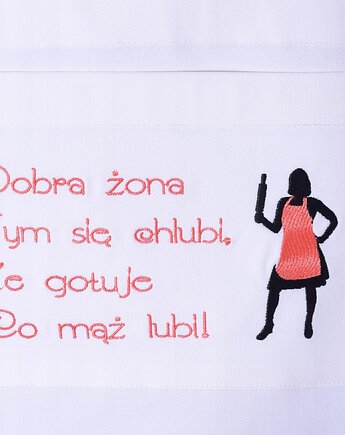 Dobra żona
Tym się chlubi,
Że gotuje
Co mąż lubi!